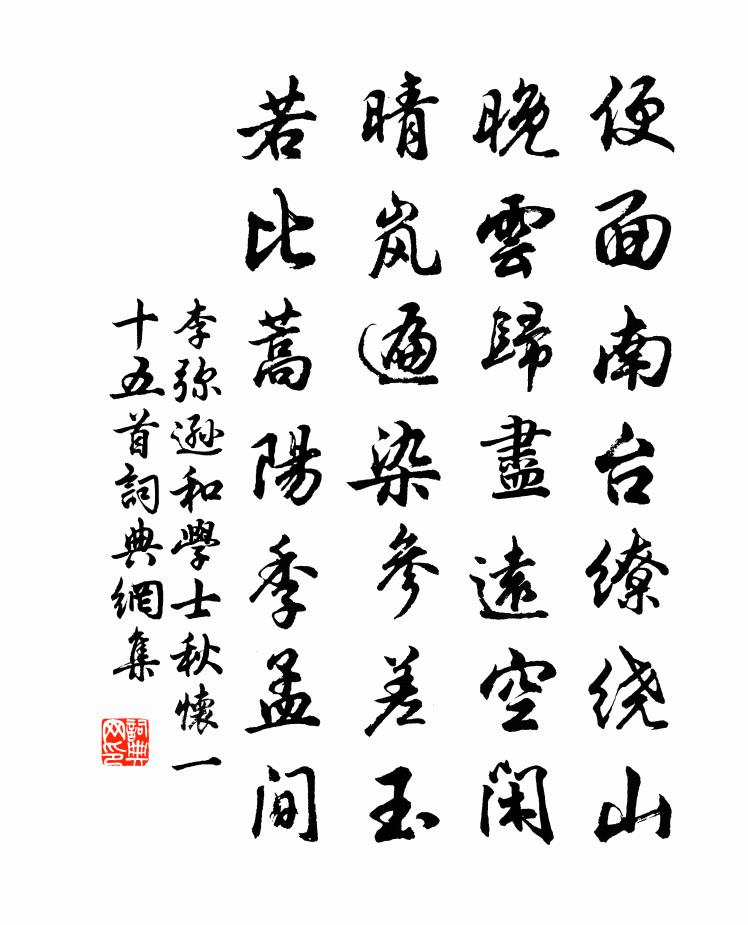 便面南台缭绕山
晚雲歸盡遠空閑
晴岚遍染參差玉
若比蒿陽季孟间
李弥遜和學士秋懷一
十五首詞典網集
詞典
网印